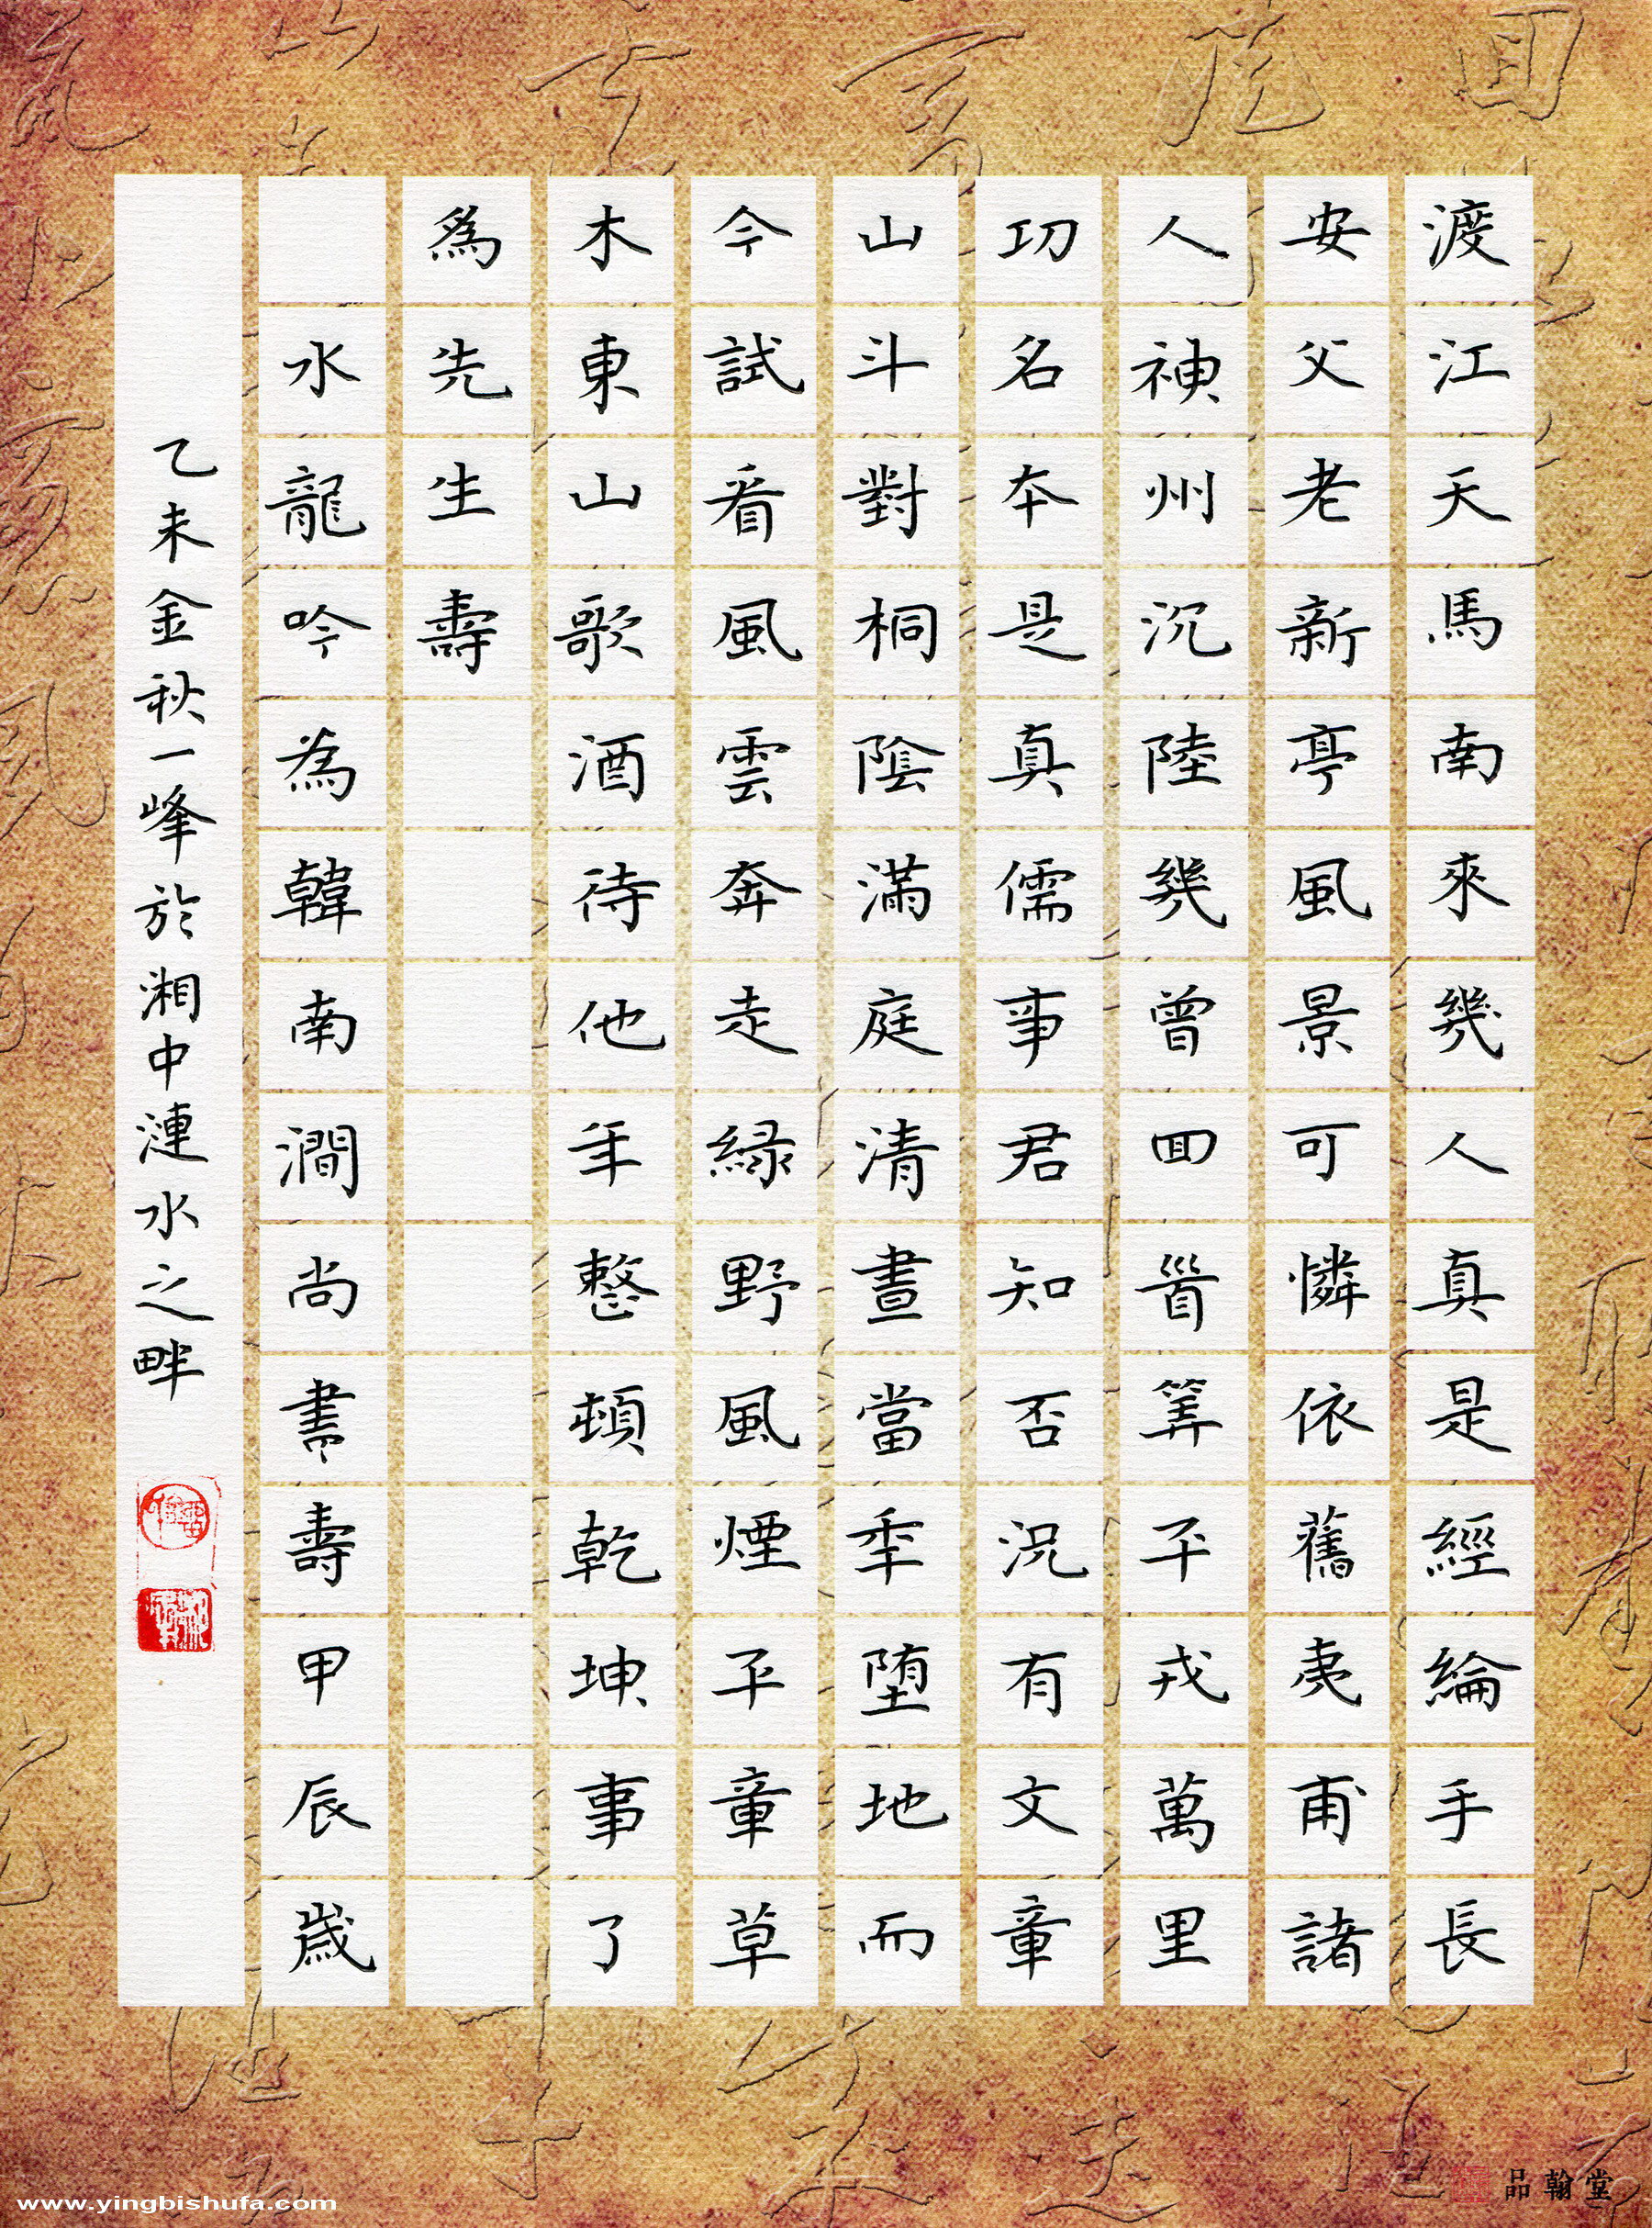 渡江天馬南來幾人真是經綸手長
安父老新亭風景可憐依舊夷甫諸
人神州沉陸幾曾回首算平戎萬里
功名本是真儒事君知否況有文章
山斗對桐陰滿庭清晝當年墮地而
今試看風雲奔走綠野風煙平章草
木東山歌酒待他年整頓乾坤事了
為先生壽
水龍吟為韓南澗尚書壽甲辰歲
乙未金秋一峰於湘中漣水之畔
www.yingbishufa.com
品翰堂